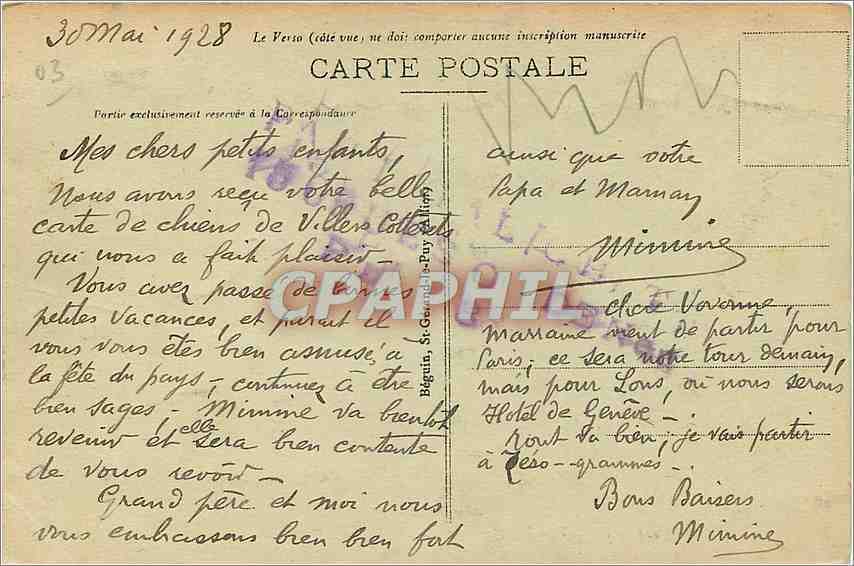 30 Mai 1928
Le Verso (côté vue) ne doit comporter aucune inscription manuscrite
03
CARTE POSTALE
Partie exclusivement reservée à la Correspondance
Mes chers petits enfants,
Nous avons reçu votre belle
carte de chiens de Villers Cotterets
qui nous a fait plaisir -
Vous avez passé de bonnes
petites vacances, et parait il
vous vous êtes bien amusé, à
la fête du pays, - continuez à être
bien sages, - Mimine va bientôt
revenir et elle sera bien contente
de vous revoir -
Grand père et moi nous
vous embrassons bien bien fort
Béguin, St-Gérand-le-Puy (Allier)
ainsi que votre
Papa et Maman
Mimine
CPAPHIL.COM
chère Vovonne,
Marraine vient de partir pour
Paris; ce sera notre tour demain,
mais pour Lons, où nous serons
Hotel de Genève -
Tout va bien; je vais partir
à - grammes -
Bons Baisers
Mimine